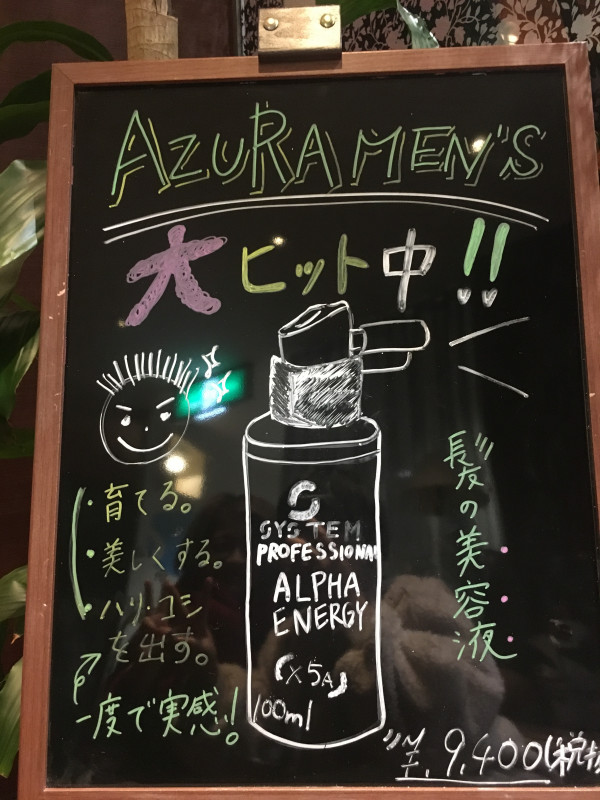 AZURA MEN'S
大ヒット中!!
S
SYSTEM
PROFESSIONAL
ALPHA
ENERGY
(X5A)
100ml
・育てる。
・美しくする。
・ハリ・コシ
を出す。
一度で実感!
髪の美容液
¥9,400(税抜